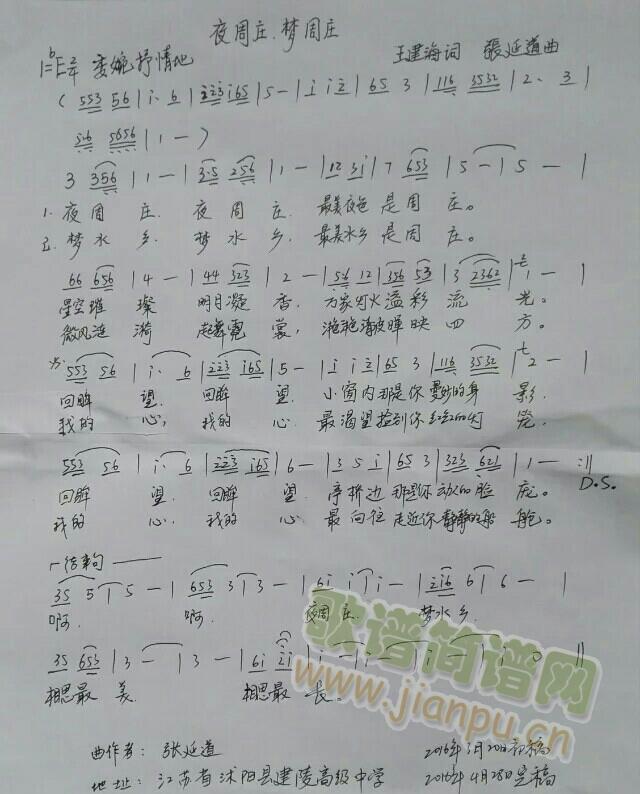 夜周庄.梦周庄
1=bE 2/4 委婉抒情地 王建海词 張延道曲
( 553 56 | i· 6 | 223 i65 | 5 - | i i 2 | 65 3 | 116 3532 | 2· 3 |
56 5656 | 1 - )
3 356 | 1 - | 3·5 256 | 1 - | 12 3i | 7 653 | 5 - | 5 - |
1. 夜周庄. 夜周庄. 最美夜色是周庄。
2. 梦水乡. 梦水乡, 最美水乡是周庄。
66 656 | 4 - | 44 323 | 2 - | 56 12 | 356 53 | 3 2362 | 1 - |
星空璀璨 明月凝香, 万家灯火溢彩流光。
微风涟漪 霓裳, 滟滟清波晖映四方。
553 56 | i· 6 | 223 i65 | 5 - | i i 2 | 65 3 | 116 3532 | 2 - |
回眸望. 回眸望. 小窗内那是你曼妙的身影.
我的心, 我的心. 最渴望捡到你的灯
553 56 | i· 6 | 223 i65 | 6 - | 3 5 i | 65 3 | 323 621 | 1 - :||
回眸望. 回眸望. 亭桥边那是你动人的脸庞。 D.S.
我的心, 我的心. 最向往走近你静静的船舱。
结束句
35 5 | 5 - | 653 3 | 3 - | 6i i | i - | 2i6 6 | 6 - |
啊. 啊. 夜周庄. 梦水乡.
35 653 | 3 - | 3 - | 6i 2i | i - | i - | i - | i 0 ||
相思最美. 相思最长。
歌谱简谱网
www.jianpu.cn
曲作者: 张延道 2016年3月20日初稿
地址: 江苏省沭阳县建陵高级中学 2016年4月28日定稿